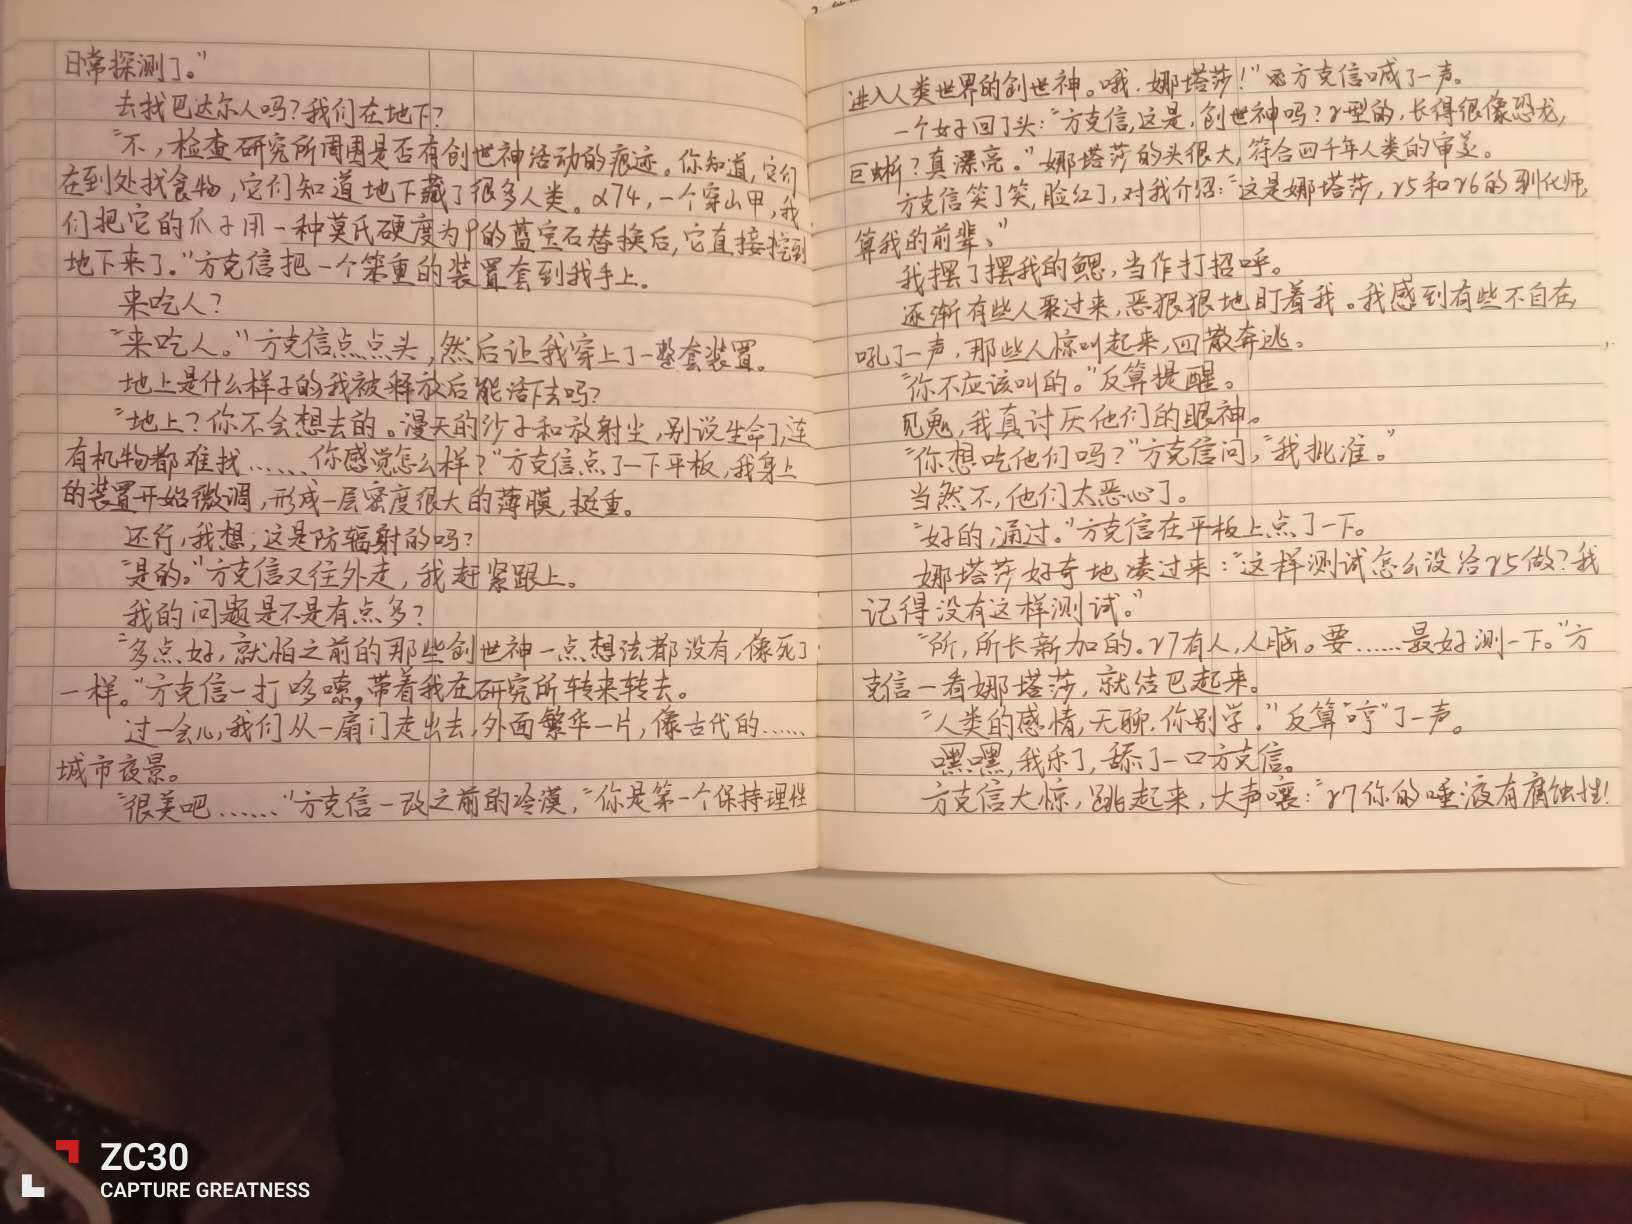 日常探测了。”
去找巴达尔人吗？我们在地下？
“不，检查研究所周围是否有创世神活动的痕迹。你知道，它们
在到处找食物，它们知道地下藏了很多人类。α74，一个穿山甲，我
们把它的爪子用一种莫氏硬度为9的蓝宝石替换后，它直接挖到
地下来了。”方克信把一个笨重的装置套到我手上。
来吃人？
“来吃人。”方克信点点头，然后让我穿上了一整套装置。
地上是什么样子的我被释放后能活下去吗？
“地上？你不会想去的。漫天的沙子和放射尘，别说生命了，连
有机物都难找……你感觉怎么样？”方克信点了一下平板，我身上
的装置开始微调，形成一层密度很大的薄膜，挺重。
还行，我想，这是防辐射的吗？
“是的。”方克信又往外走，我赶紧跟上。
我的问题是不是有点多？
“多点好，就怕之前的那些创世神一点想法都没有，像死了
一样。”方克信一打哆嗦，带着我在研究所转来转去。
过一会儿，我们从一扇门走出去，外面繁华一片，像古代的……
城市夜景。
“很美吧……”方克信一改之前的冷漠，“你是第一个保持理性
进入人类世界的创世神。哦，娜塔莎！”方克信喊了一声。
一个女子回了头：“方克信，这是，创世神吗？γ型的，长得很像恐龙，
巨蜥？真漂亮。”娜塔莎的头很大，符合四千年人类的审美。
方克信笑了笑，脸红了，对我介绍：“这是娜塔莎，γ5和γ6的驯化师，
算我的前辈、”
我摆了摆我的鳃，当作打招呼。
逐渐有些人聚过来，恶狠狠地盯着我。我感到有些不自在，
吼了一声，那些人惊叫起来，四散奔逃。
“你不应该叫的。”反算提醒。
见鬼，我真讨厌他们的眼神。
“你想吃他们吗？”方克信问，“我批准。”
当然不，他们太恶心了。
“好的，通过。”方克信在平板上点了一下。
娜塔莎好奇地凑过来：“这样测试怎么没给γ5做？我
记得没有这样测试。”
“所，所长新加的。γ7有人，人脑。要……最好测一下。”方
克信一看娜塔莎，就结巴起来。
“人类的感情，无聊，你别学。”反算“哼”了一声。
嘿嘿，我乐了，舔了一口方克信。
方克信大惊，跳起来，大声嚷：“γ7你的唾液有腐蚀性！
ZC30
CAPTURE GREATNESS